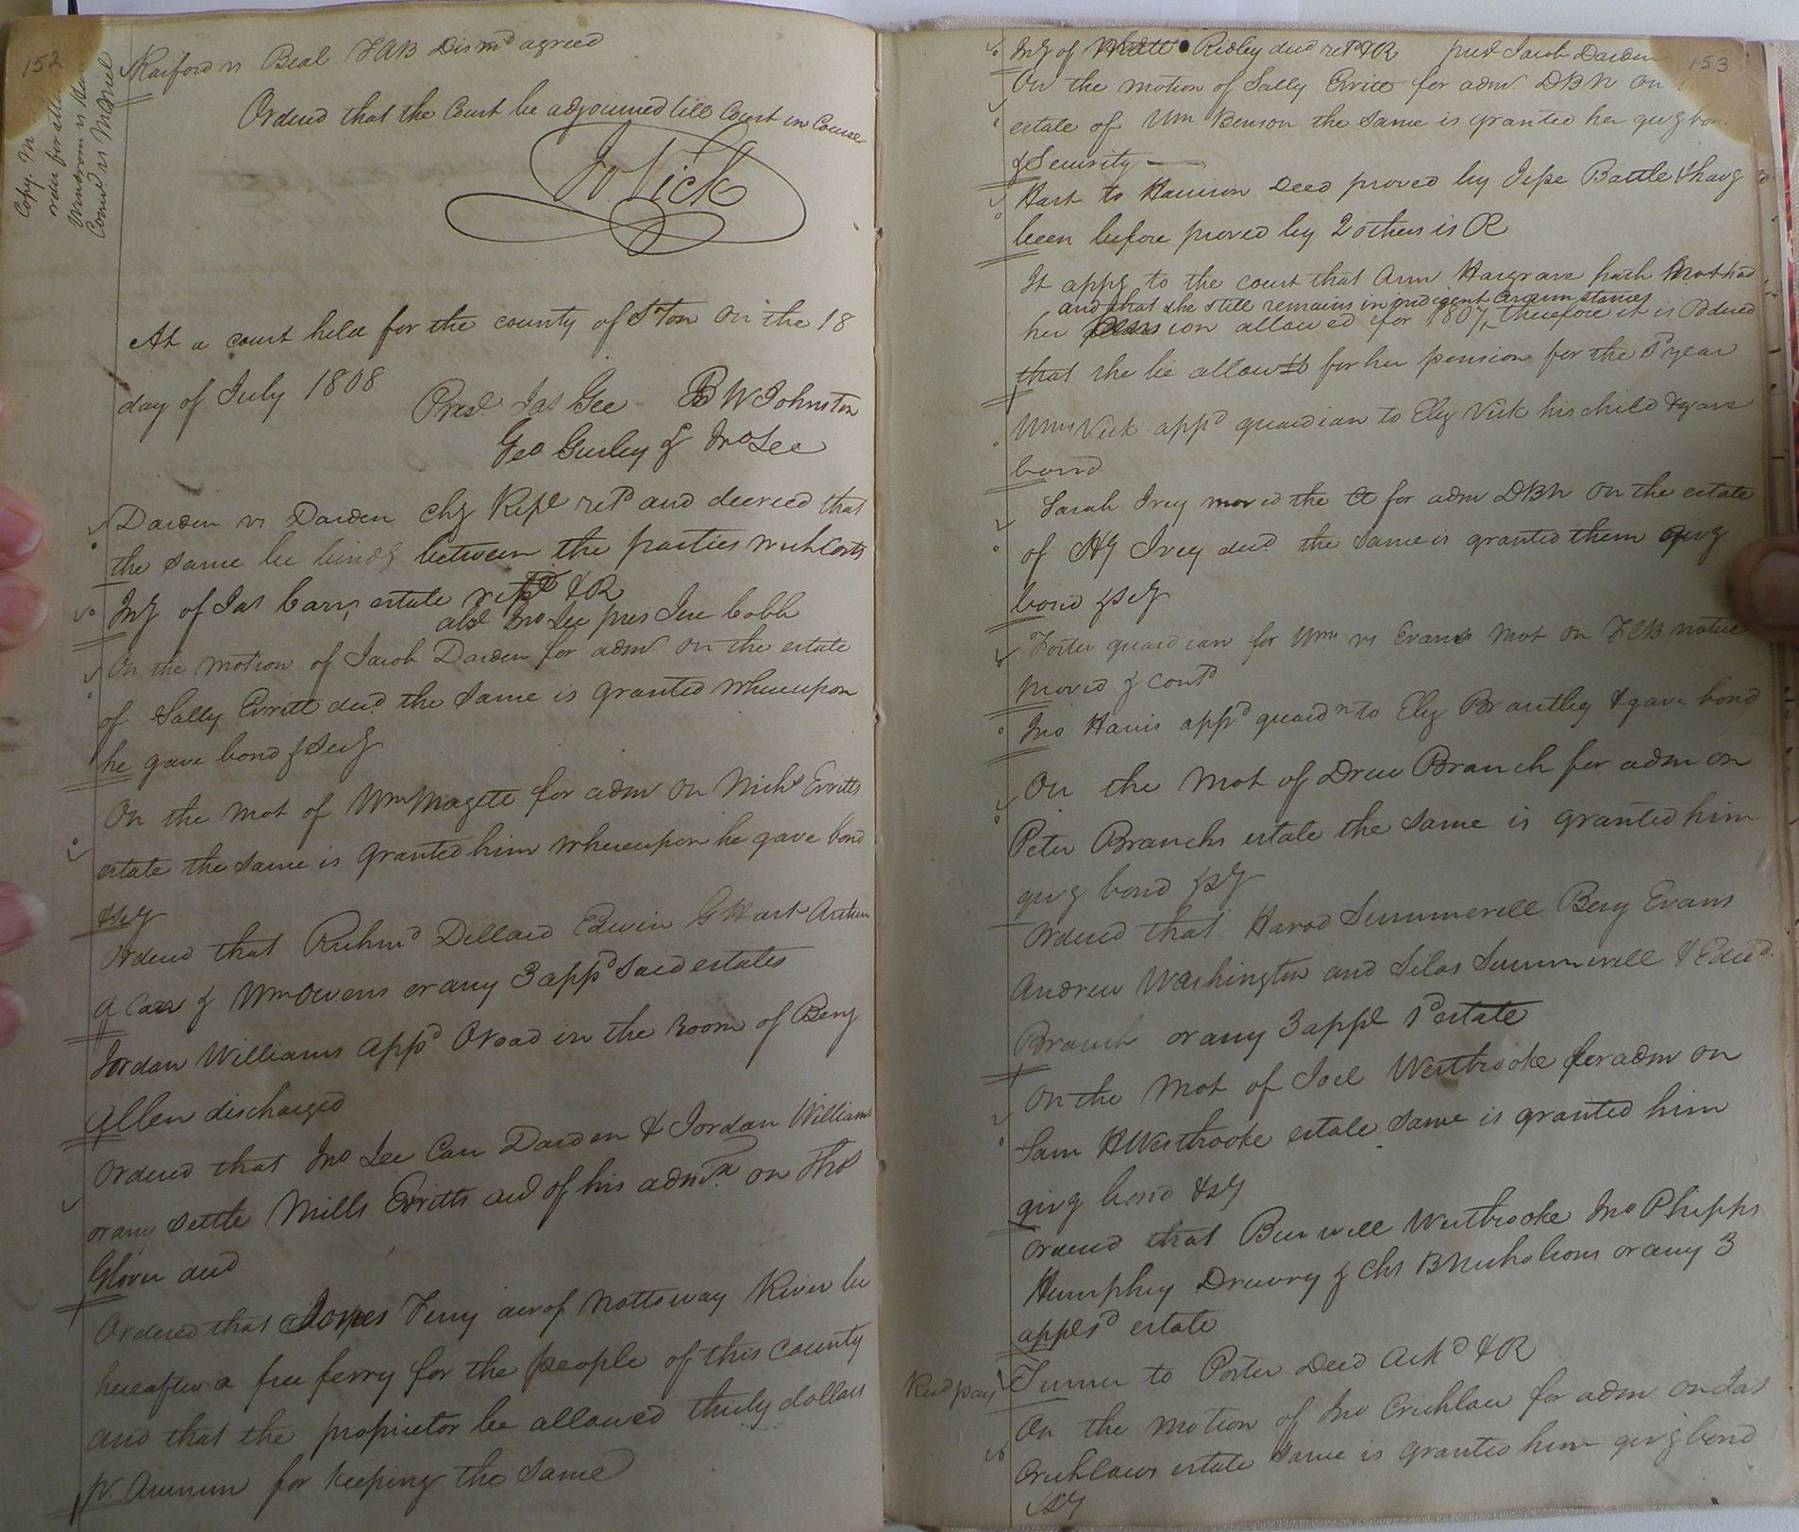 152
Copy. M
Raiford vs Beal FAB Dism.d agreed
Ordered that the Court be adjourned till Court in Course
Jo Vick
At a court held for the county of S'Ton on the 18
day of July 1808
Pres.t Jas Gee B W Johnston
Geo Gurley & Jno Lee
Darden vs Darden Chy Rept ret.d and decreed that
the same be bindg between the parties with Costs
InY of Jas Carrs estate ret.d & R
abs.t Jno Lee pres Jere Cobb
On the motion of Jacob Darden for adm.n on the estate
of Sally Evritt dec.d the same is granted whereupon
he gave bond & SecY
On the mot of Wm Magette for adm.n on Nich.s Evritts
estate the same is granted him whereupon he gave bond
& SecY
Ordered that Richm.d Dillard Edwin G Hart Arthur
A Carr & Wm Owens or any 3 app.s said estates
Jordan Williams app.d O road in the room of Benj
Allen discharged
Ordered that Jno Lee Carr Darden & Jordan Williams
or any settle Mills Evritts acct of his adm.n on Tho.s
Glover decd
Ordered that Jones Ferry acros Nottoway River be
hereafter a free ferry for the people of this county
and that the proprietor be allowed thirty dollars
pr. Annum for keeping the same
153
InY of Ridley decd ret.d & R pres.t Jacob Darden
On the motion of Sally Evritt for adm.n DBN on
estate of Wm Benson the same is granted her givg bon
& Security
Hart to Harrison Deed proved by Jesse Battle & havg
been before proved by 2 others is O R
It appg to the court that Ann Hargrave hath not had
and that she still remains in indigent circumstances
her pension allowed for 1807, therefore it is Ordered
that she be allow.d for her pension for the s.d year
Wm Vick app.d guardian to Eliz Vick his child & gave
bond
Sarah Ivey moved the Ct for adm DBN on the estate
of HY Ivey dec.d the same is granted them givg
bond & SeY
Foster guardian for Wms vs Evans Mot on FCB notice
proved & cont.d
Jno Haris app.d guard.n to Eliz Brantley & gave bond
On the mot of Drew Branch for adm on
Peter Branchs estate the same is granted him
givg bond & SY
Ordered that Harod Summerell Benj Evans
Andrew Washington and Silas Summerell & Edw.d
Branch or any 3 app.s s.d estate
On the Mot of Joel Westbrooke for adm on
Sam H Westbrooke estate same is granted him
givg bond & SY
Ordered that Burwell Westbrooke Jno Phipps
Humphry Drewry & Chs B Nicholsons or any 3
app s.d estate
Turner to Porter Deed Ack.d & R
On the motion of Jno Crichlow for adm on Jas
Crichlows estate same is granted him givg bond
& SY